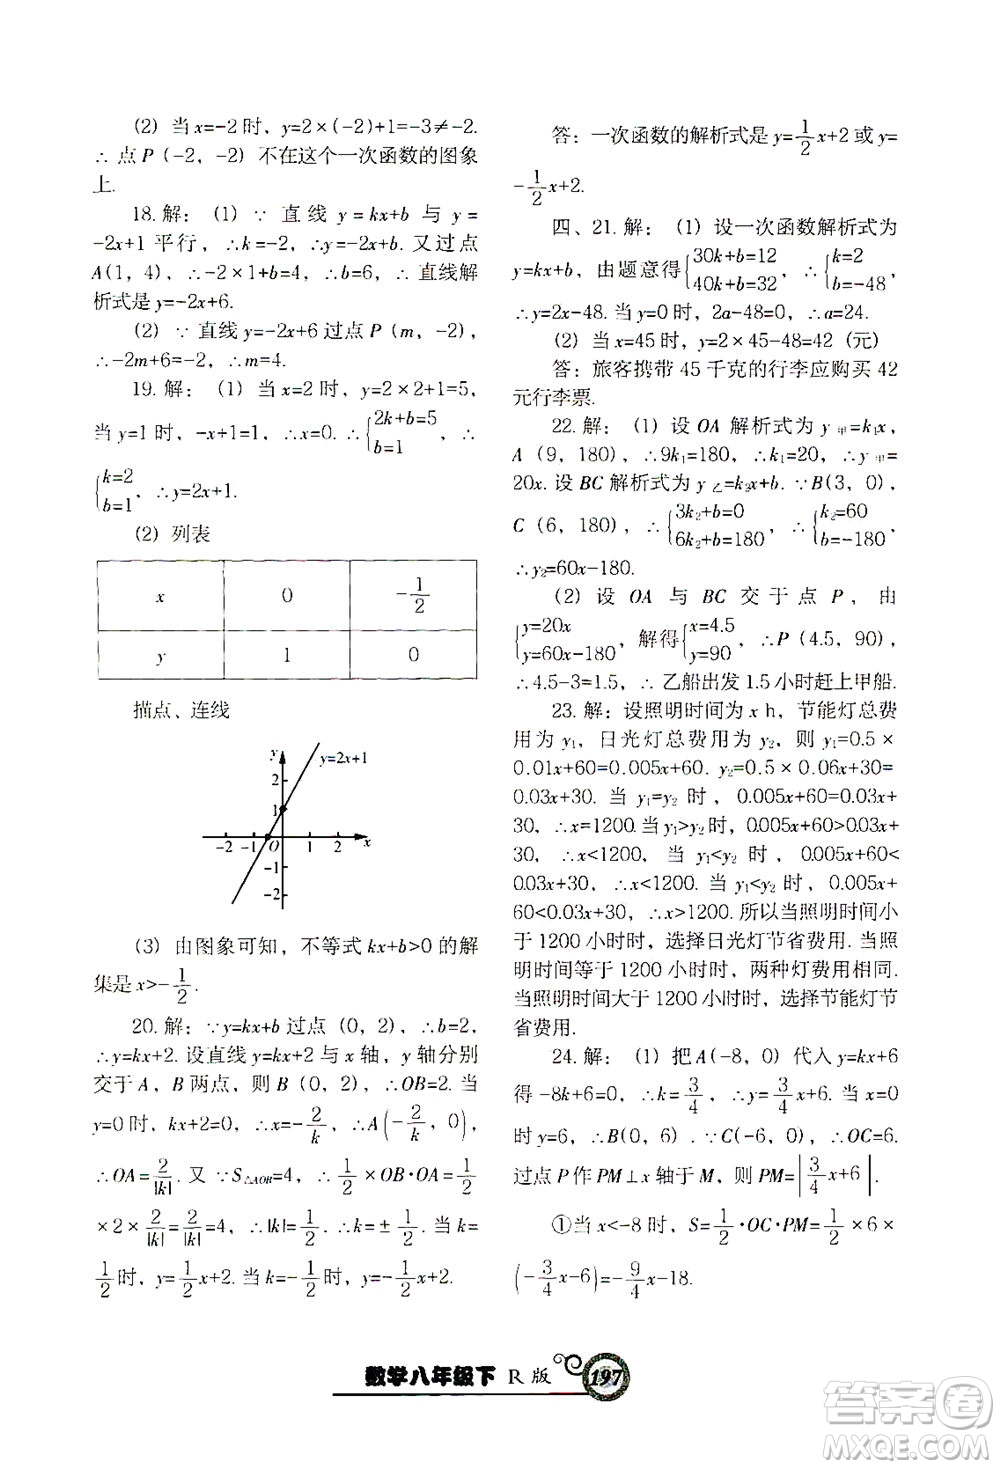 (2) 当 x=-2 时, y=2×(-2)+1=-3≠-2.
∴ 点 P (-2, -2) 不在这个一次函数的图象
上.
18. 解: (1) ∵ 直线 y=kx+b 与 y=
-2x+1 平行, ∴k=-2, ∴y=-2x+b. 又过点
A(1, 4), ∴-2×1+b=4, ∴b=6, ∴ 直线解
析式是 y=-2x+6.
(2) ∵ 直线 y=-2x+6 过点 P (m, -2),
∴-2m+6=-2, ∴m=4.
19. 解: (1) 当 x=2 时, y=2×2+1=5,
当 y=1 时, -x+1=1, ∴x=0. ∴{2k+b=5 b=1, ∴
{k=2 b=1, ∴y=2x+1.
(2) 列表
x 0 -1/2
y 1 0
描点、连线
y y=2x+1
2
1
-2 -1 O 1 2 x
-1
-2
(3) 由图象可知, 不等式 kx+b>0 的解
集是 x>-1/2.
20. 解: ∵y=kx+b 过点 (0, 2), ∴b=2,
∴y=kx+2. 设直线 y=kx+2 与 x 轴, y 轴分别
交于 A, B 两点, 则 B (0, 2), ∴OB=2. 当
y=0 时, kx+2=0, ∴x=-2/k, ∴A(-2/k, 0),
∴OA=2/|k|. 又 ∵S△AOB=4, ∴1/2×OB·OA=1/2
×2×2/|k|=2/|k|=4, ∴|k|=1/2, ∴k=±1/2. 当 k=
1/2 时, y=1/2x+2. 当 k=-1/2 时, y=-1/2x+2.
答: 一次函数的解析式是 y=1/2x+2 或 y=
-1/2x+2.
四、21. 解: (1) 设一次函数解析式为
y=kx+b, 由题意得{30k+b=12 40k+b=32, ∴{k=2 b=-48,
∴y=2x-48. 当 y=0 时, 2a-48=0, ∴a=24.
(2) 当 x=45 时, y=2×45-48=42 (元)
答: 旅客携带 45 千克的行李应购买 42
元行李票.
22. 解: (1) 设 OA 解析式为 y甲=k₁x,
A (9, 180), ∴9k₁=180, ∴k₁=20, ∴y甲=
20x. 设 BC 解析式为 y乙=k₂x+b. ∵B(3, 0),
C (6, 180), ∴{3k₂+b=0 6k₂+b=180, ∴{k₂=60 b=-180,
∴y₂=60x-180.
(2) 设 OA 与 BC 交于点 P, 由
{y=20x y=60x-180, 解得{x=4.5 y=90, ∴P (4.5, 90),
∴4.5-3=1.5, ∴ 乙船出发 1.5 小时赶上甲船.
23. 解: 设照明时间为 x h, 节能灯总费
用为 y₁, 日光灯总费用为 y₂, 则 y₁=0.5×
0.01x+60=0.005x+60. y₂=0.5×0.06x+30=
0.03x+30. 当 y₁=y₂ 时, 0.005x+60=0.03x+
30, ∴x=1200. 当 y₁>y₂ 时, 0.005x+60>0.03x+
30, ∴x<1200, 当 y₁<y₂ 时, 0.005x+60<
0.03x+30, ∴x<1200. 当 y₁<y₂ 时, 0.005x+
60<0.03x+30, ∴x>1200. 所以当照明时间小
于 1200 小时时, 选择日光灯节省费用. 当照
明时间等于 1200 小时时, 两种灯费用相同.
当照明时间大于 1200 小时时, 选择节能灯节
省费用.
24. 解: (1) 把 A(-8, 0) 代入 y=kx+6
得 -8k+6=0, ∴k=3/4, ∴y=3/4x+6. 当 x=0
时 y=6, ∴B(0, 6). ∵C(-6, 0), ∴OC=6.
过点 P 作 PM⊥x 轴于 M, 则 PM=|3/4x+6|.
①当 x<-8 时, S=1/2·OC·PM=1/2×6×
(-3/4x-6)=-9/4x-18.
数学八年级下 R 版 197
答案卷
MXQE.COM